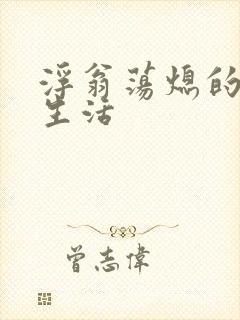 浮翁荡熄的
生活
曾志偉